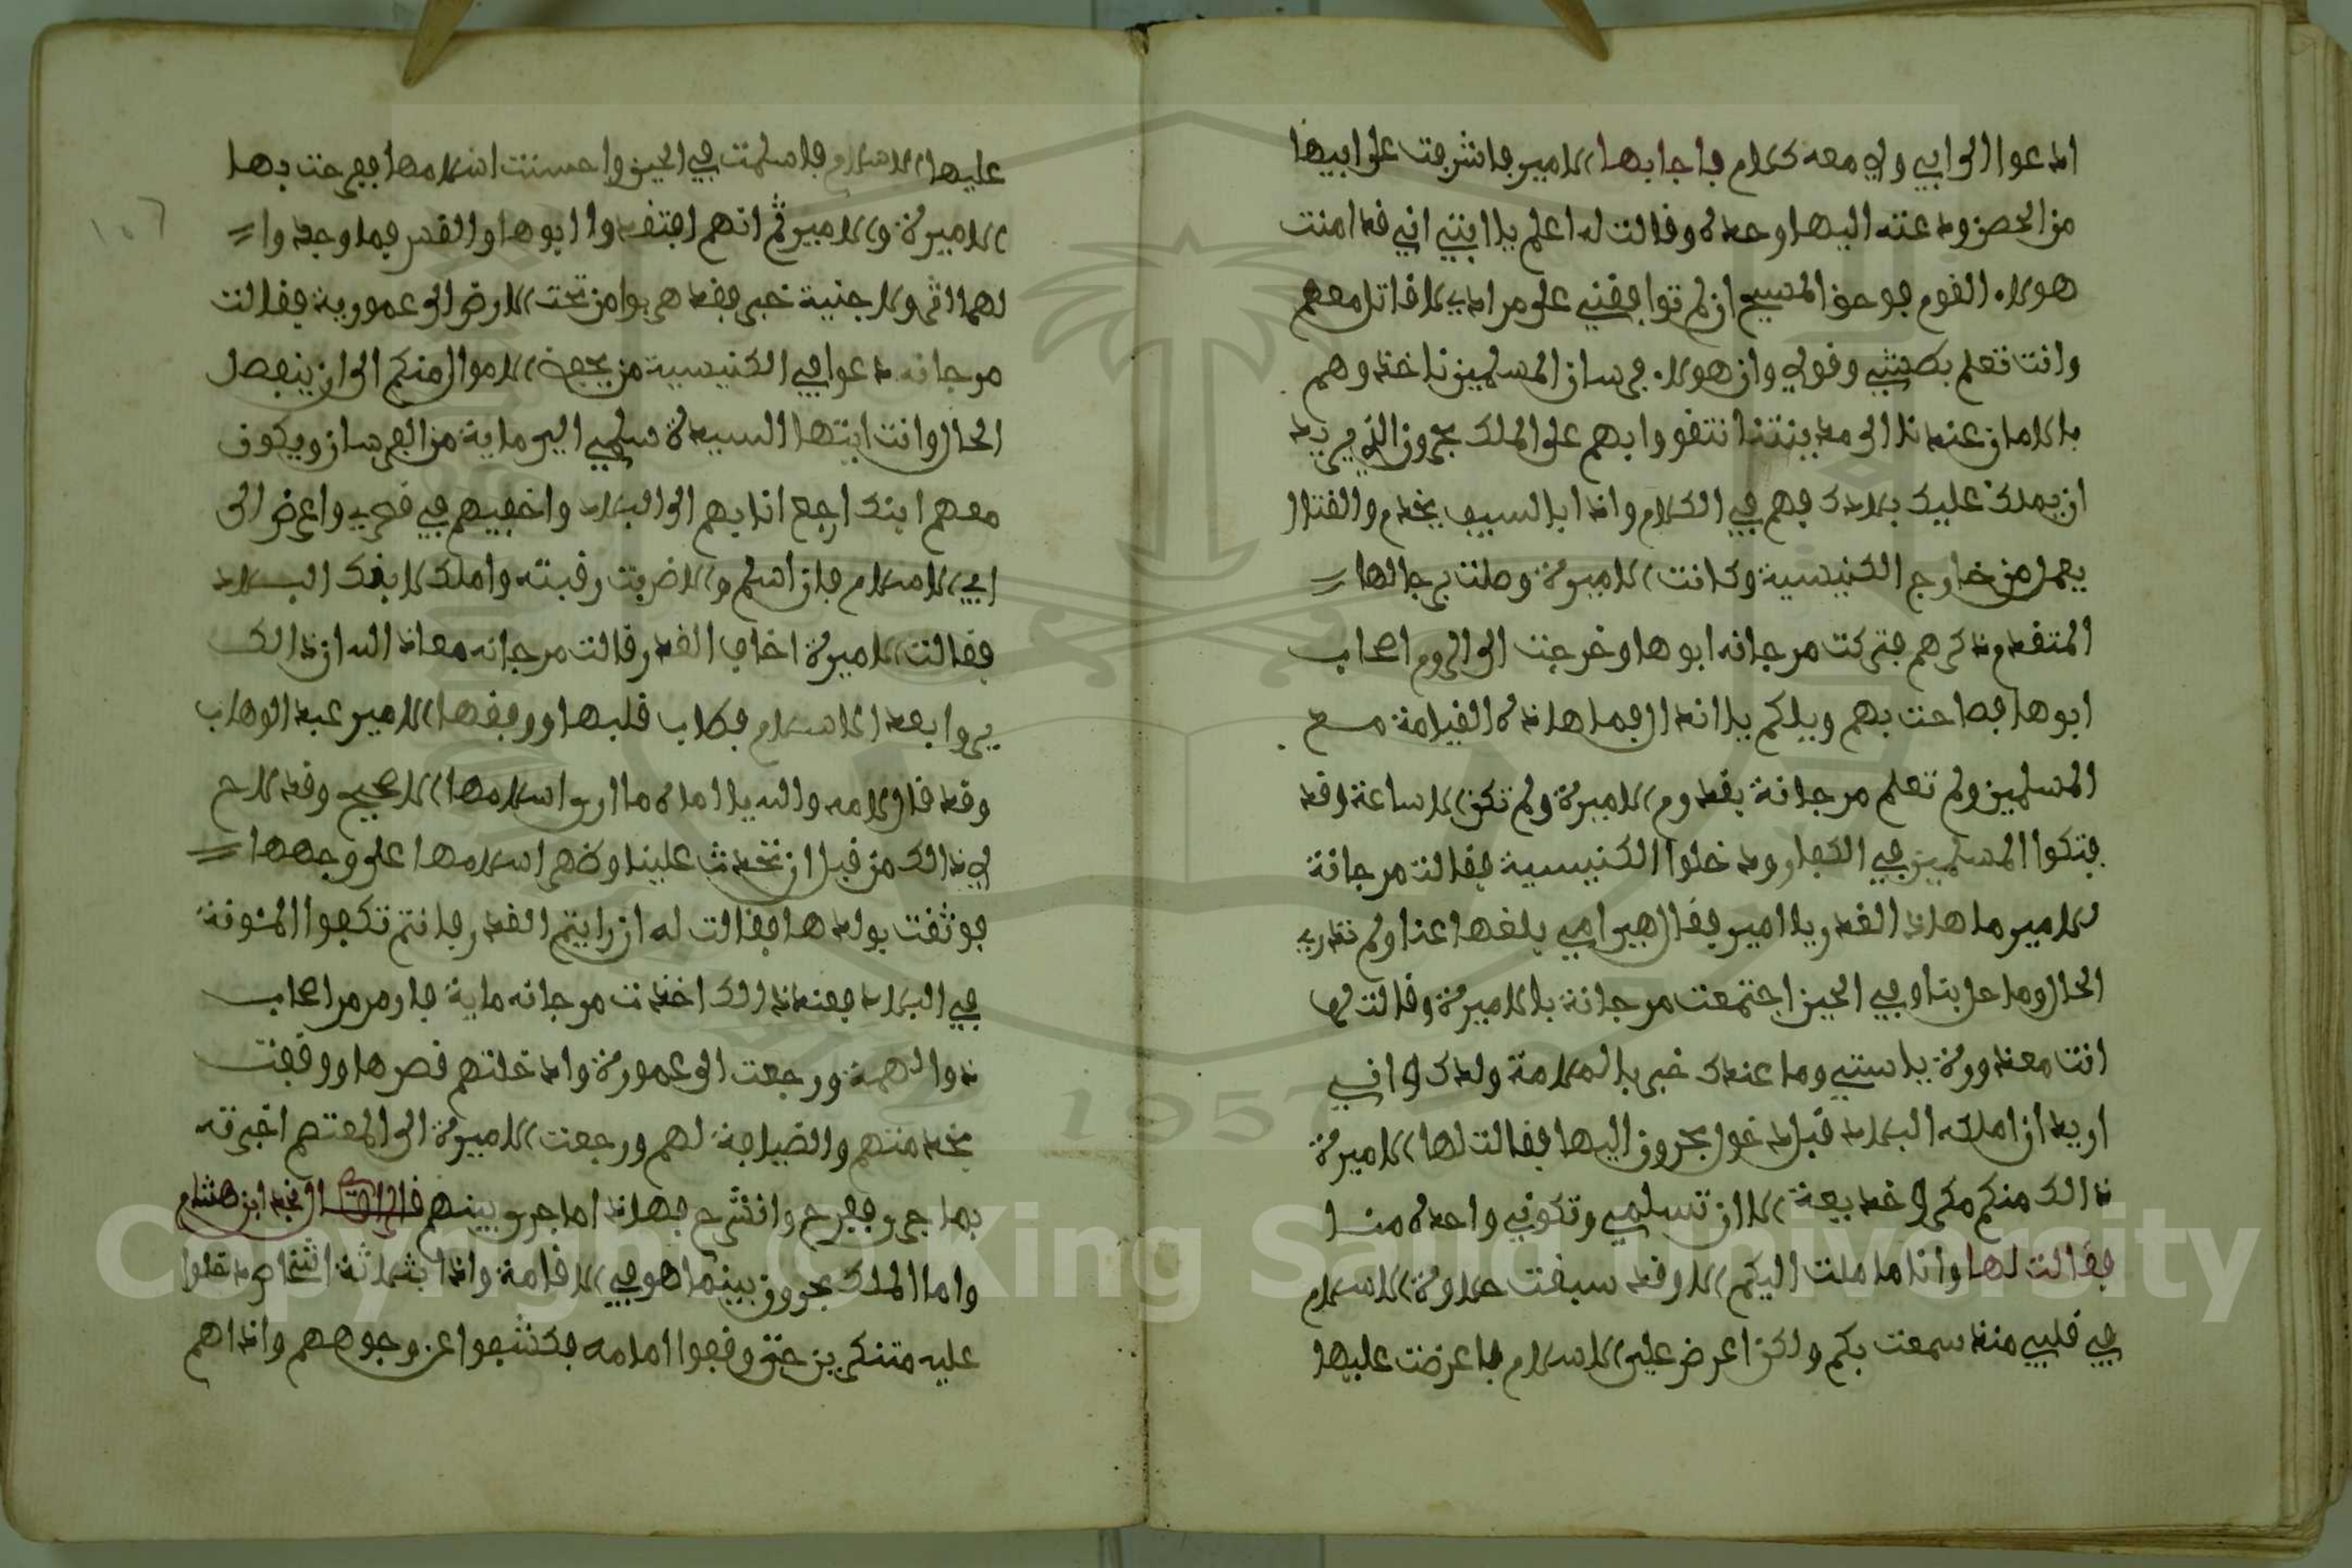 ادعوا الى ابي ولي معه كلام فاجابها الامير فاشرفت على ابيها
من الحصن ودعته اليها وحده وقالت له اعلم يا ابتي اني قد امنت
هولاء القوم فوحق المسيح ان لم توافقني على مرادي لاقاتل معهم
وانت تعلم بطشي وقولي وان هولاء فرسان المسلمين ناخذوهم
بالامان عندنا الى مدينتنا نتقووا بهم على الملك بحرون الذي يريد
ان يملك عليك بلادك فهم في الكلام واذا بالسيف يخدم والقتال
يعمل من خارج الكنيسية وكانت الاميرة وصلت برجالها
المتقدم ذكرهم فتركت مرجانه ابوها وخرجت الى الروم اصحاب
ابوها فصاحت بهم ويلكم يا اندال فما هاذه القيامة مع
المسلمين ولم تعلم مرجانة بقدوم الاميرة ولم تكن الا ساعة وقد
فتكوا المسلمين في الكفار ودخلوا الكنيسية فقالت مرجانة
للامير ما هاذا الغدر يا امير فقال هي امي بلغها عنا ولم تدري
الحال وما حل بنا وفي الحين اجتمعت مرجانة بالاميرة وقالت لها
انت معذورة يا ستي وما عندك خبر بالملامة ولدك لاني
اريد ان املكه البلاد قبل دخول بحرون اليها فقالت لها الاميرة
ذالك منكم مكر او خديعة الا ان تسلمي وتكوني واحدة منا
فقالت لها وانا ما ملت اليكم الا وقد سبقت حلاوة الاسلام
في قلبي منذ سمعت بكم ولكن اعرض علي الاسلام فاعرضت عليها
عليها الاسلام فاسلمت في الحين واحسنت اسلامها ففرحت بها
الاميرة والامير ثم انهم افتقدوا ابوها والقس فما وجدوا
لهما اثر ولا جنية خبر فقد هربوا من تحت الارض الى عمورية فقالت
مرجانه دعوا في الكنيسية من يحفظ الاموال منكم الى ان ينفصل
الحال وانت ايتها السيدة سلمي الي ماية من الفرسان ويكون
معهم ابنك ارجع انا بهم الى البلاد واخفيهم في قصري واعرض الى
ابي الاسلام فان اسلم والا ضربت رقبته واملك لابنك البلاد
فقالت الاميرة اخاف الغدر قالت مرجانه معاذ الله ان ذالك
يروا بعد الاسلام فطاب قلبها ووافقها الامير عبد الوهاب
وقد قال لامه والله يا اماه ما ارى اسلامها الا صحيح وقد لاح
لي ذالك من قبل ان نتحدث علينا وظهر اسلامها على وجهها
فوثقت بولدها فقالت له ان رايتم الغدر فانتم تكفوا المئونة
في البلاد فعند ذالك اخذت مرجانه ماية فارس من اصحاب
ذو الهمة ورجعت الى عمورة وادخلتهم قصرها ووقفت
بخدمتهم والضيافة لهم ورجعت الاميرة الى المعتصم اخبرته
بما جرى ففرح وانشرح فهاذا ما جرى بينهم قال الراوي نجد ابن هشام
واما الملك بحرون بينما هو في الاقامة واذا بثلاثة اشخاص دخلوا
عليه متنكرين حتى وقفوا امامه فكشفوا عن وجوههم واذا هم